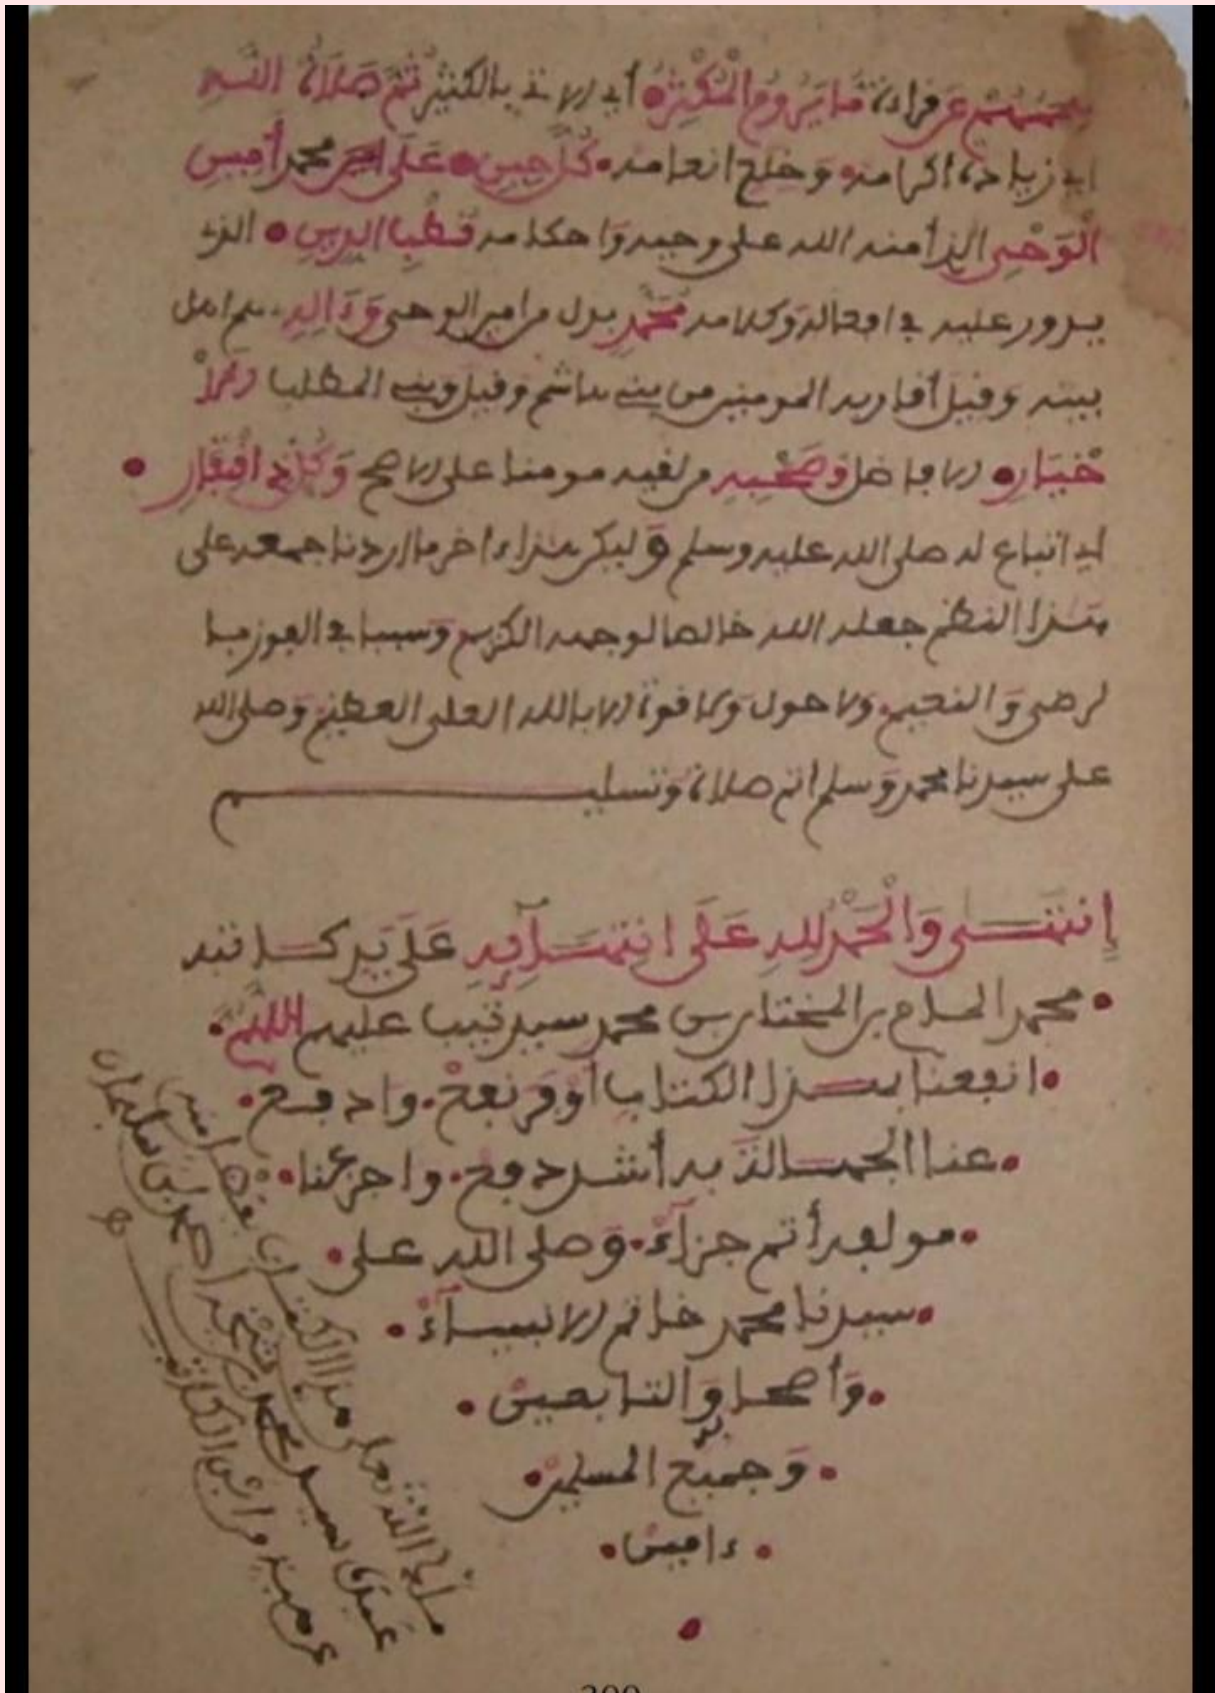 عن قراءة ما يروم المكثر • أي الاتي بالكثير ثم صلاة الله
اي زيادة اكرامه • وخلع انعامه • كل حين • على محمد أمين
الوحي الذ أمنه الله على وحيه واحكامه قطب الدين • الذ
يدور عليه في افعاله وكلامه محمد بدل من امين الوحي وءاله هم اهل
بيته وقيل أقاربه المومنين من بني هاشم وقيل وبني المطلب الأ
خيار • الافاضل وصحبه من لقيه مومنا على الاصح وكل ذي اقتفار •
اي اتباع له صلى الله عليه وسلم وليكن هذا ءاخر ما اردنا جمعه على
هذا النظم جعله الله خالصا لوجهه الكريم وسببا في الفوز با
لرضى والنعيم • ولا حول ولا قوة الا بالله العلي العظيم وصلى الله
على سيدنا محمد وسلم اتم صلاة وتسليم
إنتهى والحمد لله على انتهآئه على يد كاتبه
• محمد بن المختار بن محمد سيد تيب عليهم اللهم •
• انفعنا بهذا الكتاب أوفر نفع • وادفع •
• عنا الجهالة به أشد دفع • واجز عنا •
• مولفه أتم جزآء • وصلى الله على •
• سيدنا محمد خاتم الانبيآء •
• وأصحابه والتابعين •
• وجميع المسلمين •
• ءامين •
من الله تعلى هذا الكتاب